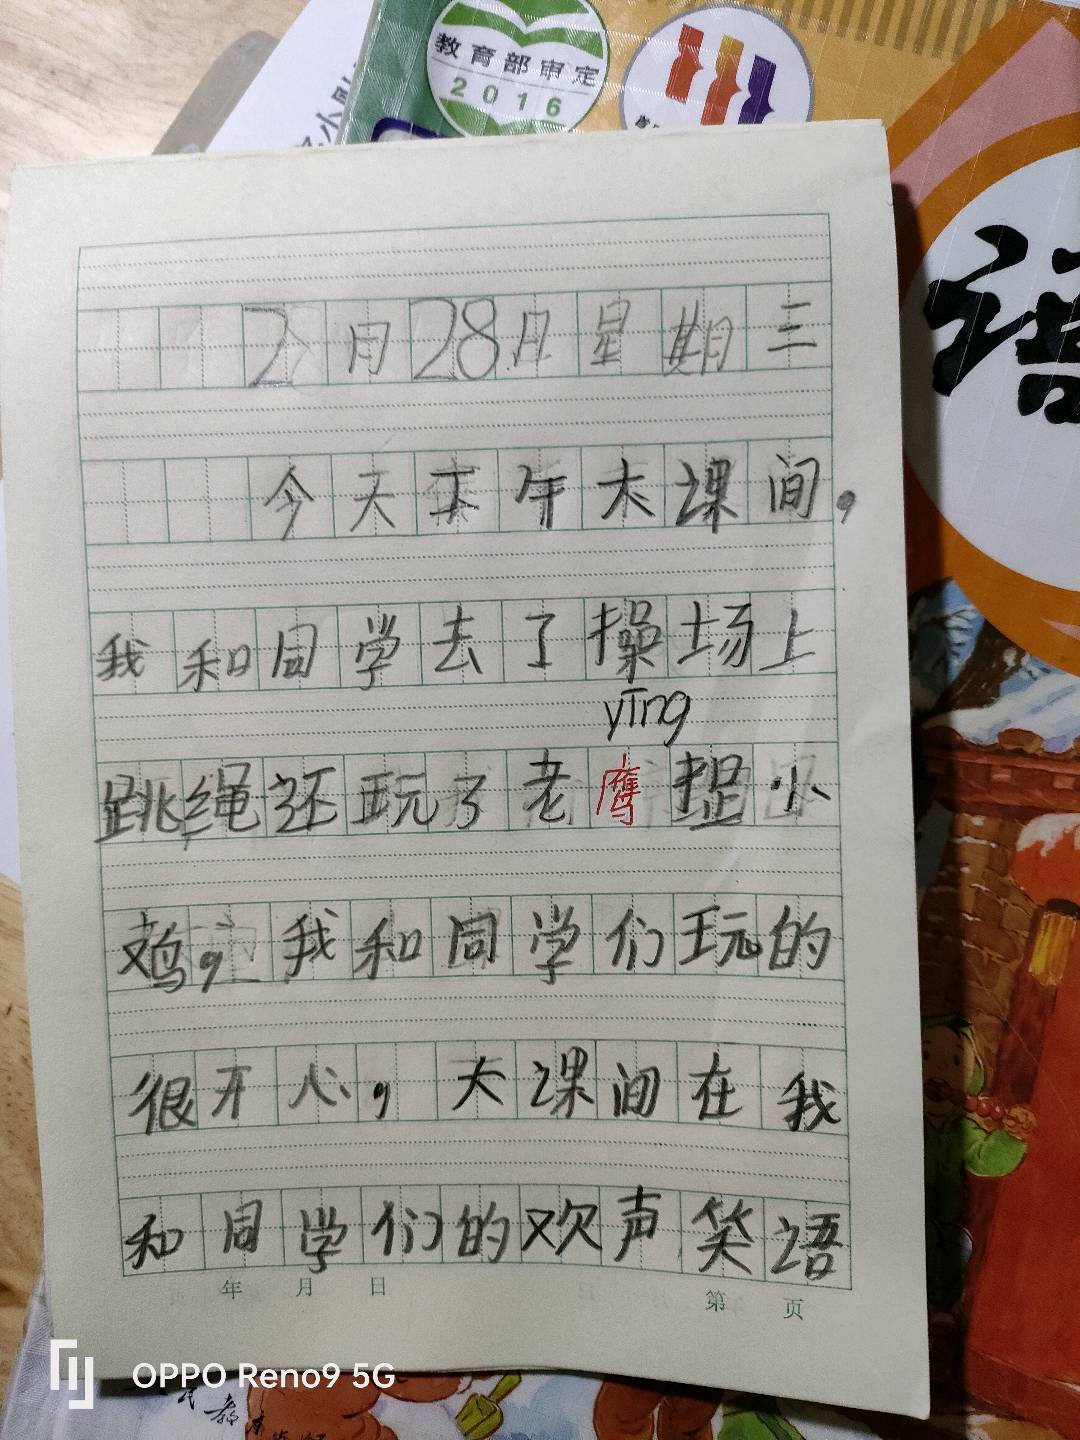 教育部审定
2016
语
2月28日星期三
今天下午大课间,
我和同学去了操场上
yīng
跳绳还玩了老鹰捉小
鸡,我和同学们玩的
很开心,大课间在我
和同学们的欢声笑语
年 月 日 第 页
OPPO Reno9 5G